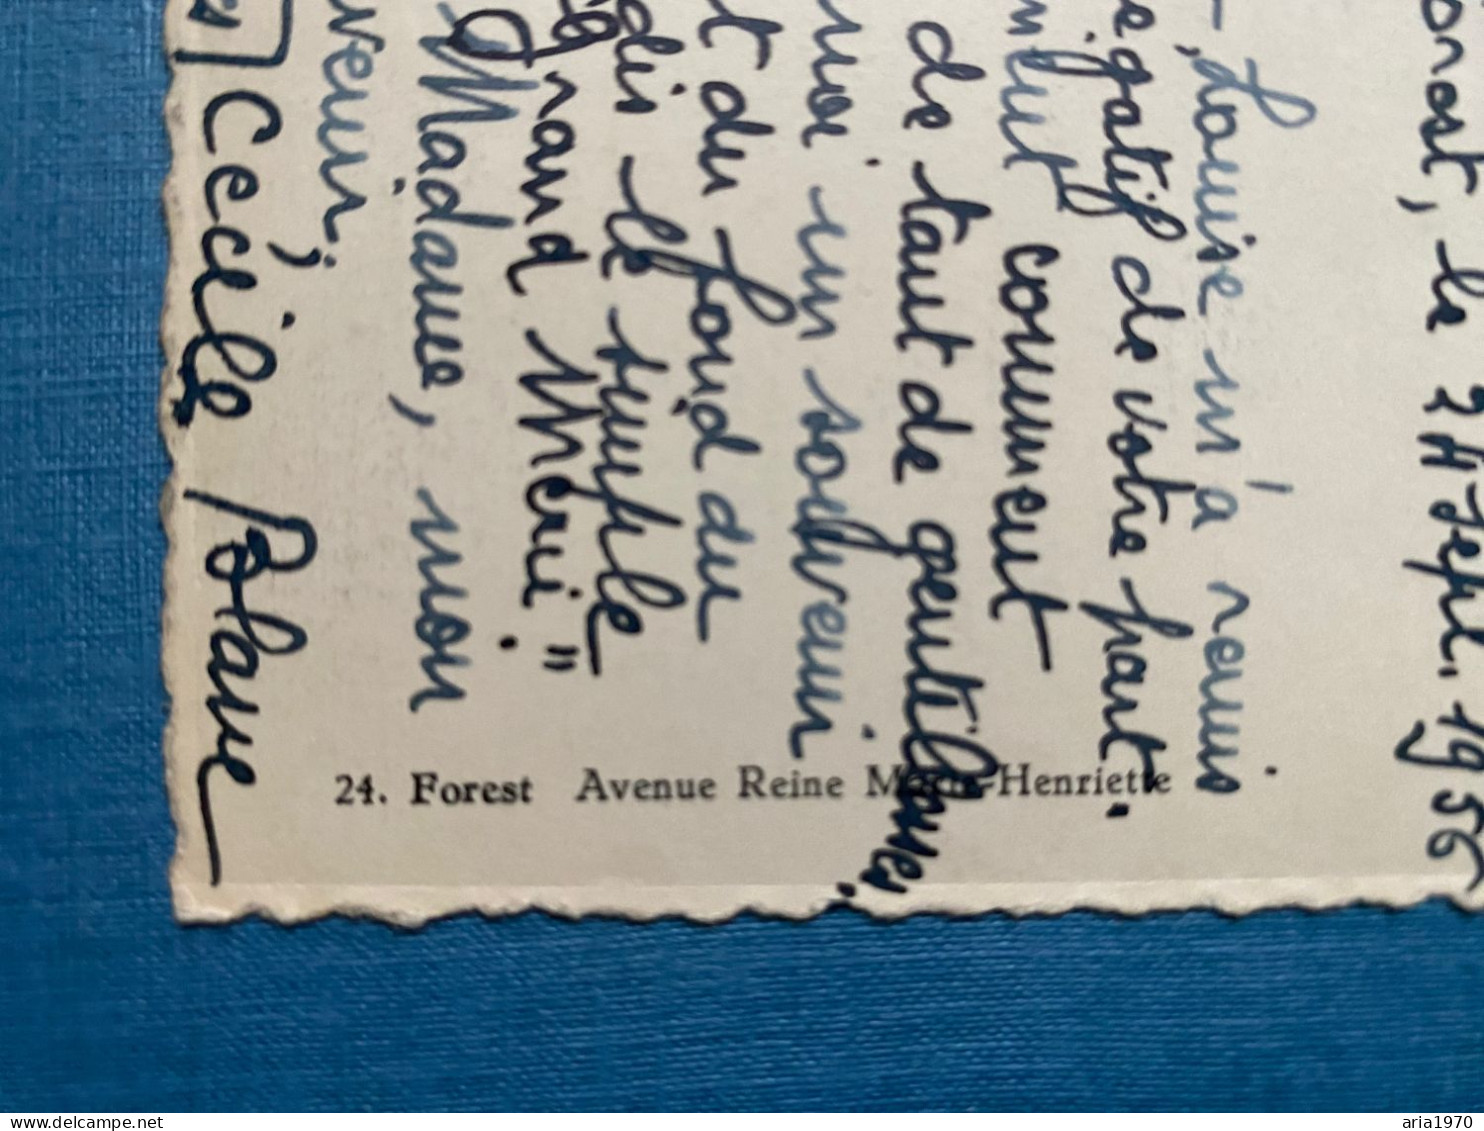 onst, le 24 Sept. 1956
-Louise m'a remis
egatif de votre part.
comment
de tant de gentillesses.
moi un souvenir
t du fond du
dis le simple
grand Merci"
Madame, mon
venir,
Cécile Blave
24. Forest Avenue Reine Marie-Henriette
www.delcampe.net
aria1970